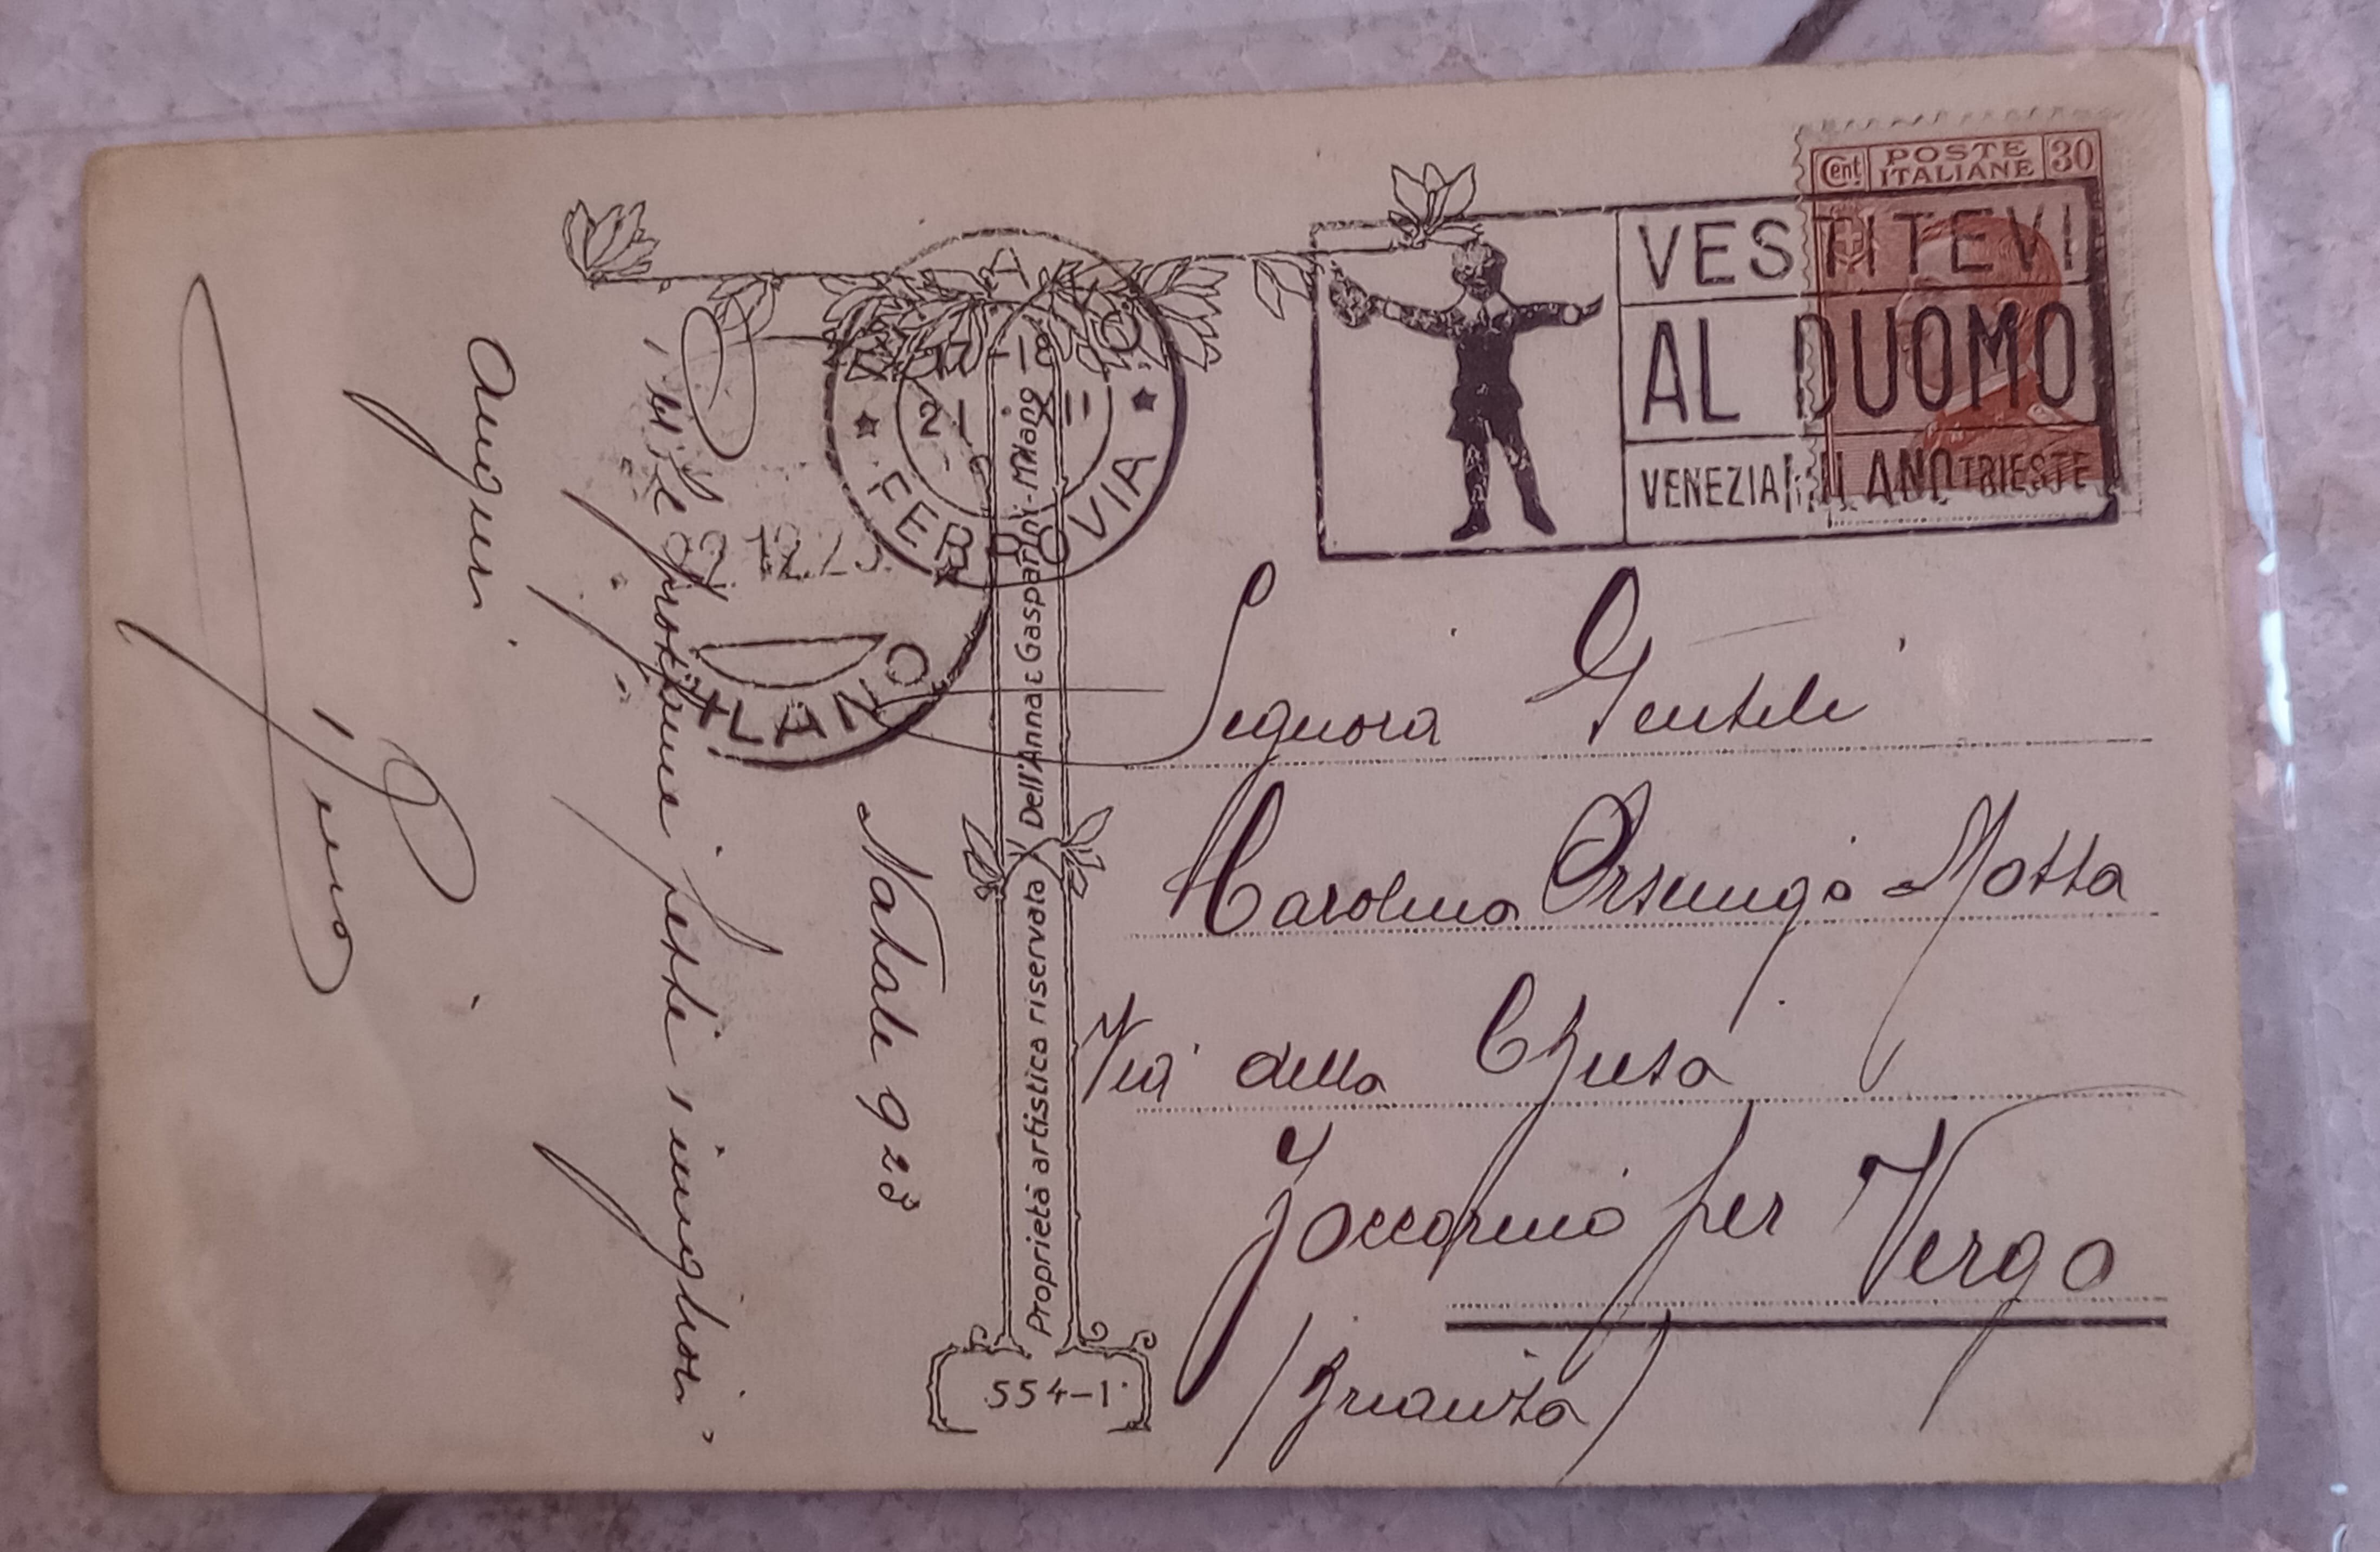 Natale 923
Per le prossime feste i migliori
auguri
Piero
Proprietà artistica riservata Dell'Anna e Gasparini-Milano
554-1
PADOVA
17-18
21 XII
FERROVIA
22.12.23.
MILANO
VESTITEVI
AL DUOMO
VENEZIA MILANO TRIESTE
Cent. POSTE ITALIANE 30
Signora Gentile
Carolina Orsenigo Motta
Via della Chiesa
Zoccorino per Vergo
(Brianza)